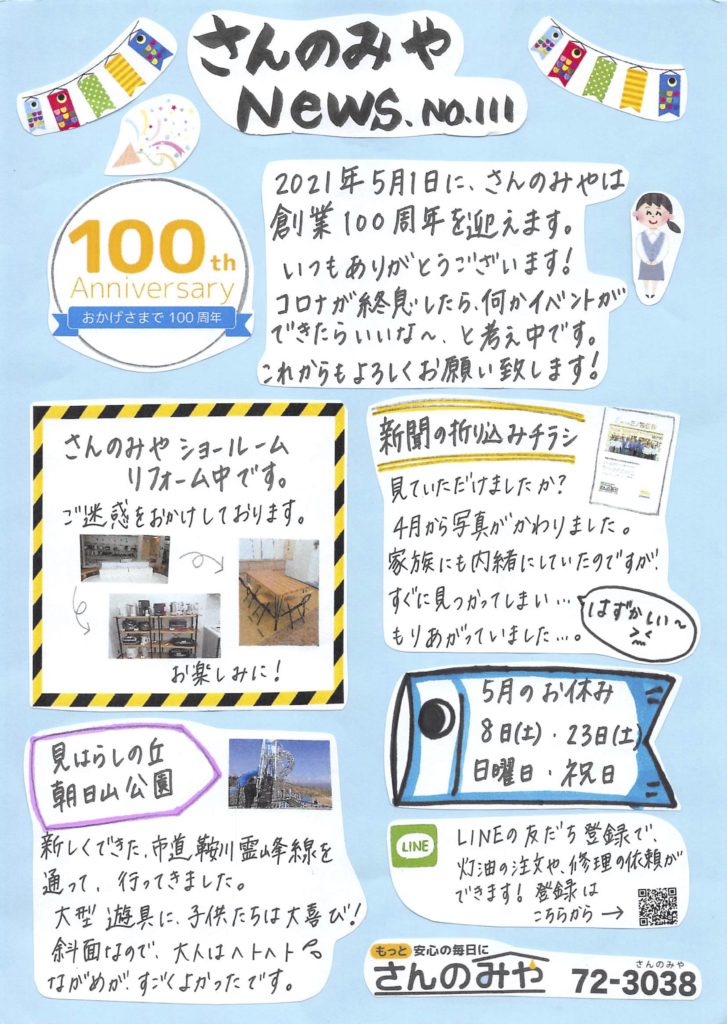 さんのみや
News. NO.111
2021年5月1日に、さんのみやは
創業100周年を迎えます。
いつもありがとうございます!
コロナが終息したら、何かイベントが
できたらいいな〜、と考え中です。
これからもよろしくお願い致します!
100th
Anniversary
おかげさまで100周年
さんのみや ショールーム
リフォーム中です。
ご迷惑をおかけしております。
お楽しみに!
新聞の折り込みチラシ
見ていただけましたか?
4月から写真がかわりました。
家族にも内緒にしていたのですが、
すぐに見つかってしまい…
もりあがっていました…。
はずかしい〜
5月のお休み
8日(土)・23日(土)
日曜日・祝日
見はらしの丘
朝日山公園
新しくできた、市道鞍川霊峰線を
通って、行ってきました。
大型遊具に、子供たちは大喜び!
斜面なので、大人はヘトヘト
ながめが、すごくよかったです。
LINE
LINEの友だち登録で、
灯油の注文や、修理の依頼が
できます! 登録は
こちらから→
もっと 安心の毎日に
さんのみや
さんのみや
72-3038